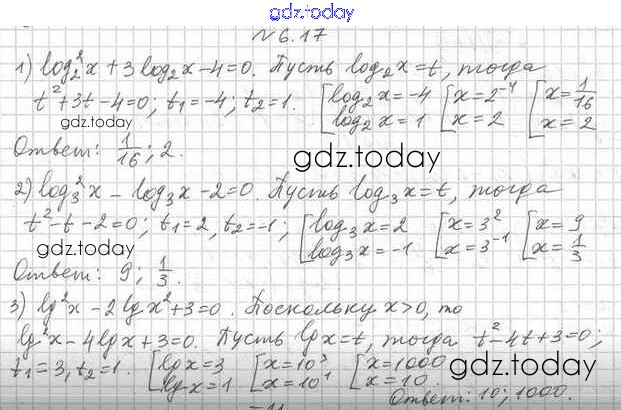 gdz.today
№ 6.17
1) log₂²x + 3log₂x − 4 = 0. Пусть log₂x = t, тогда
t² + 3t − 4 = 0; t₁ = −4; t₂ = 1. [log₂x = −4 [x = 2⁻⁴ [x = 1/16
log₂x = 1 x = 2 x = 2
gdz.today
Ответ: 1/16; 2.
gdz.today
2) log₃²x − log₃x − 2 = 0. Пусть log₃x = t, тогда
t² − t − 2 = 0; t₁ = 2, t₂ = −1; [log₃x = 2 [x = 3² [x = 9
log₃x = −1 x = 3⁻¹ x = 1/3
gdz.today
Ответ: 9; 1/3.
3) lg²x − 2lgx² + 3 = 0. Поскольку x > 0, то
lg²x − 4lgx + 3 = 0. Пусть lgx = t, тогда t² − 4t + 3 = 0;
t₁ = 3, t₂ = 1. [lgx = 3 [x = 10³ [x = 1000
lgx = 1 x = 10¹ x = 10.
gdz.today
Ответ: 10; 1000.